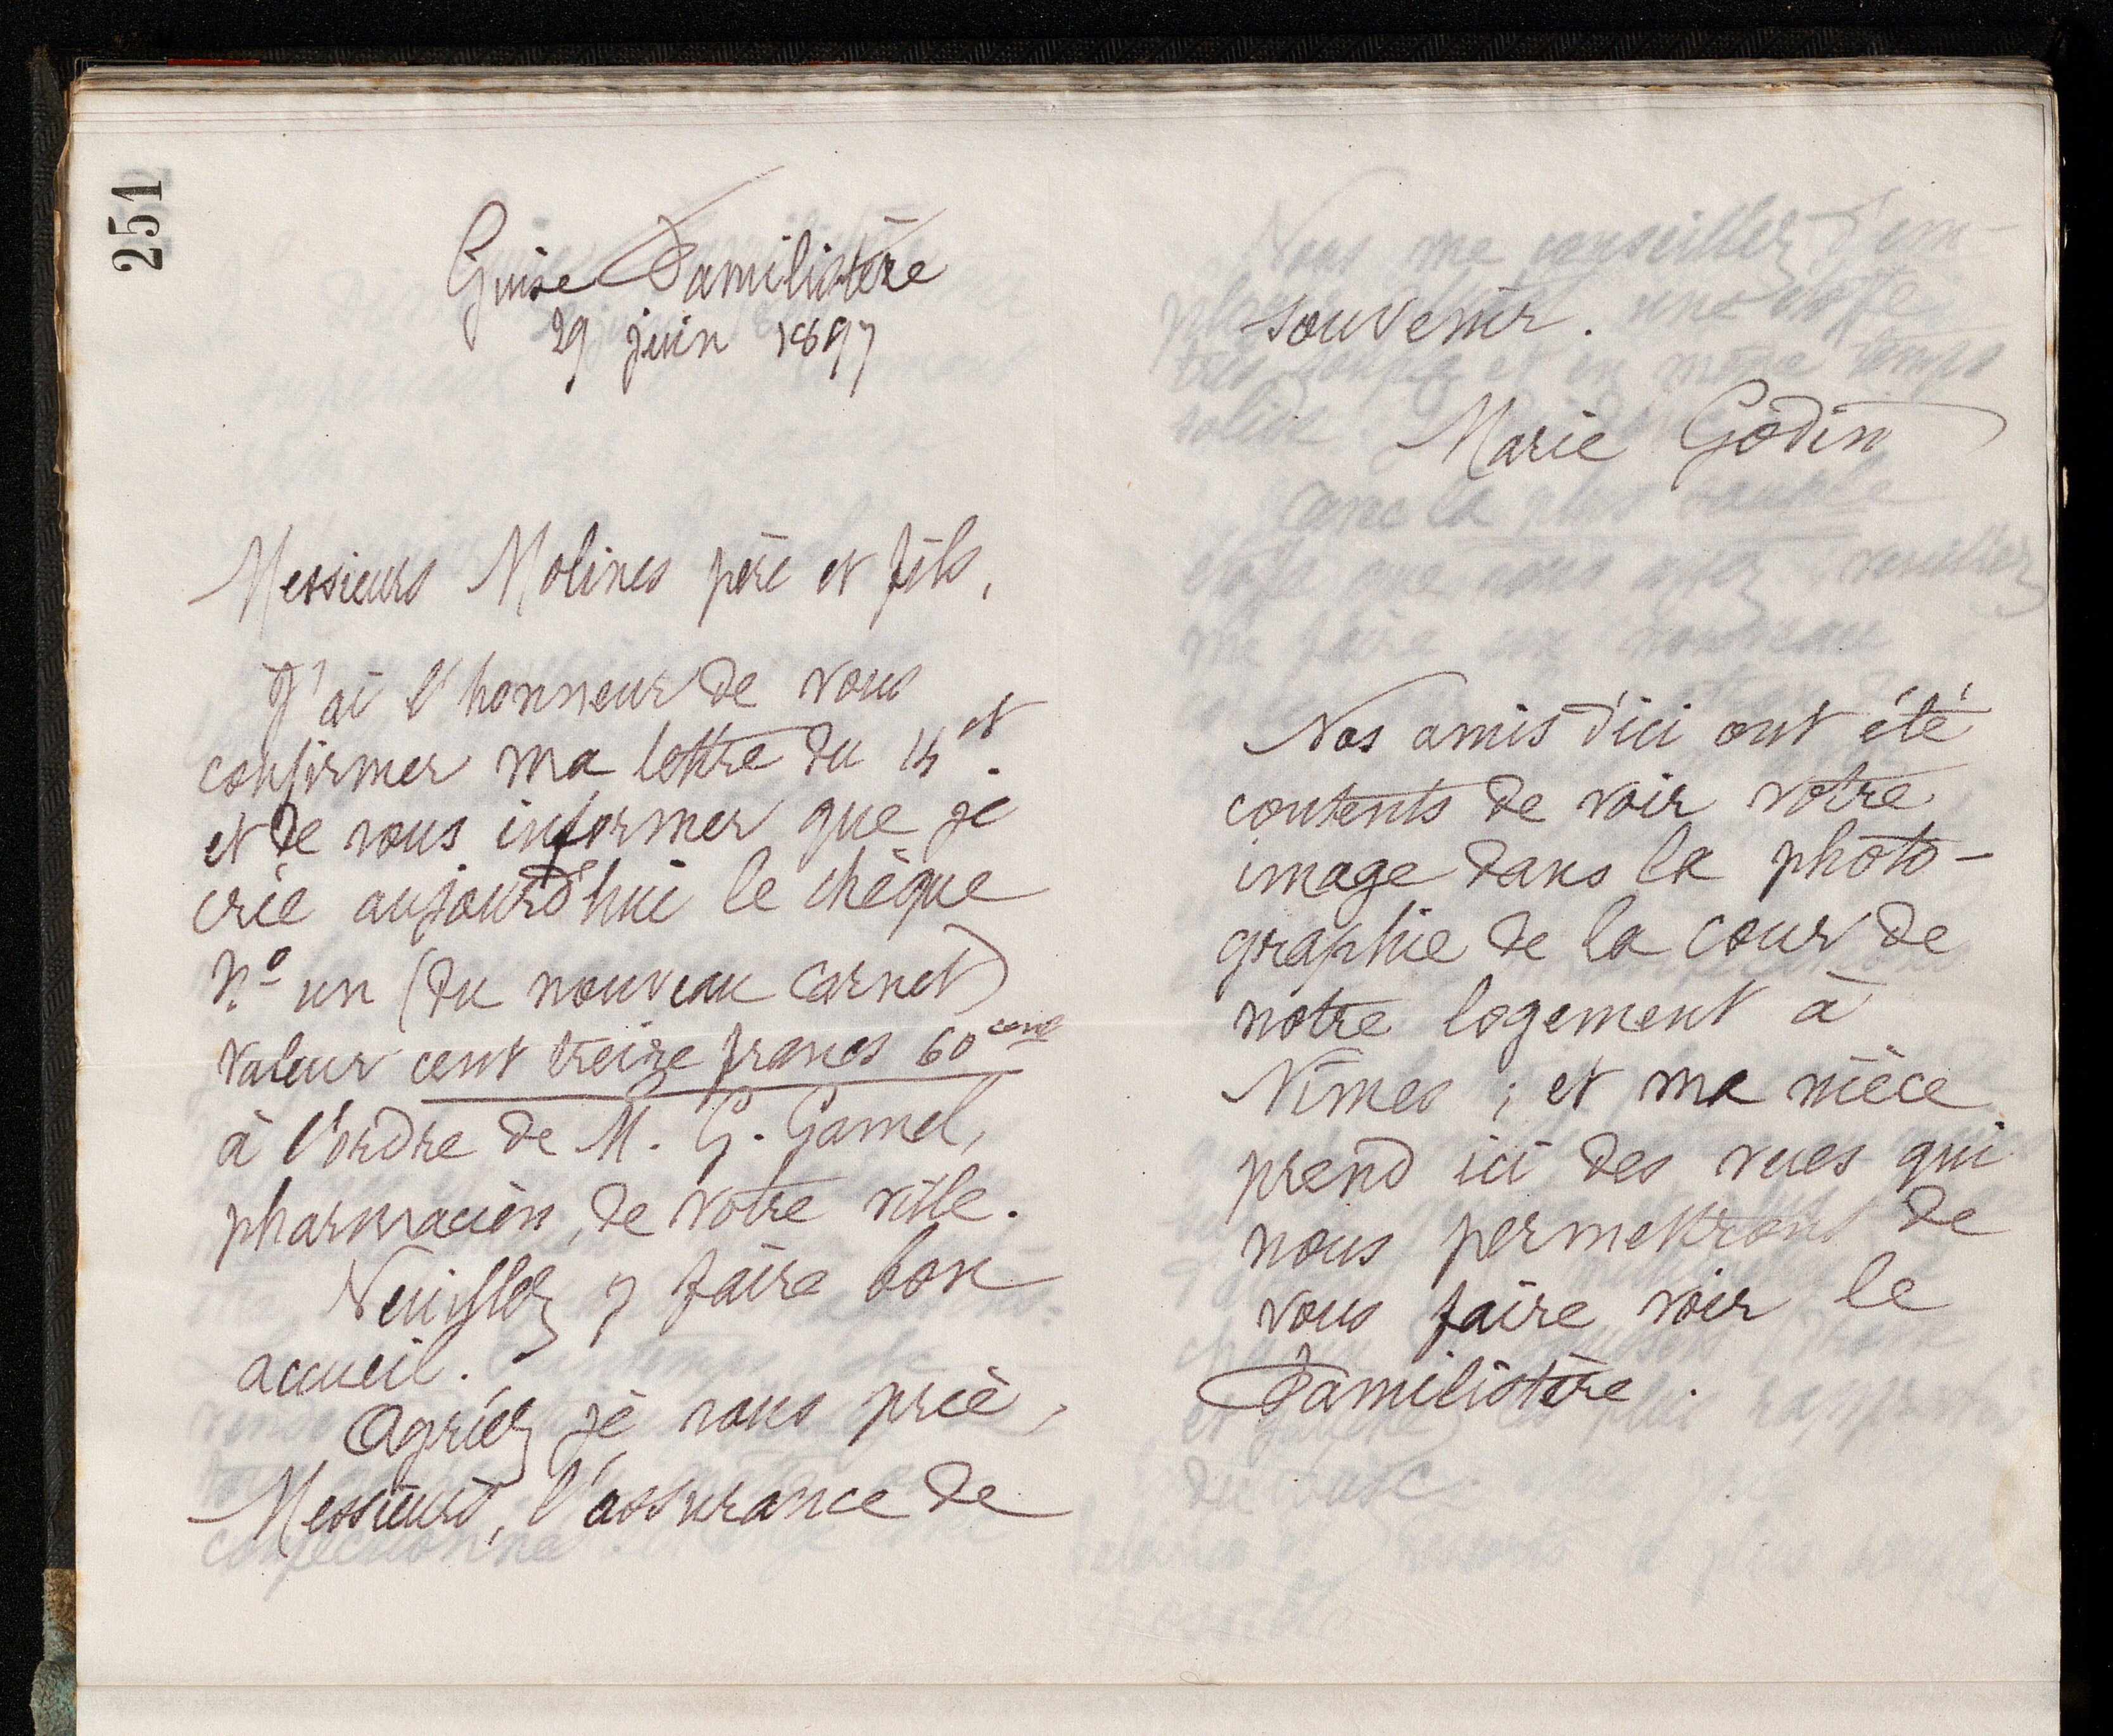 251
Guise Familistère
29 juin 1897
Messieurs Molines père et fils,
J'ai l'honneur de vous
confirmer ma lettre du 14 ct.
et de vous informer que je
crée aujourd'hui le chèque
n.º un (du nouveau carnet)
valeur cent treize francs 60 cent
à l'ordre de M. G. Gamel,
pharmacien, de votre ville.
Veuillez y faire bon
accueil.
Agréez je vous prie,
Messieurs, l'assurance de
souvenir.
Marie Godin
Nos amis d'ici ont été
contents de voir votre
image dans la photo-
graphie de la cour de
notre logement à
Nîmes ; et ma nièce
prend ici des vues qui
nous permettront de
vous faire voir le
Familistère.